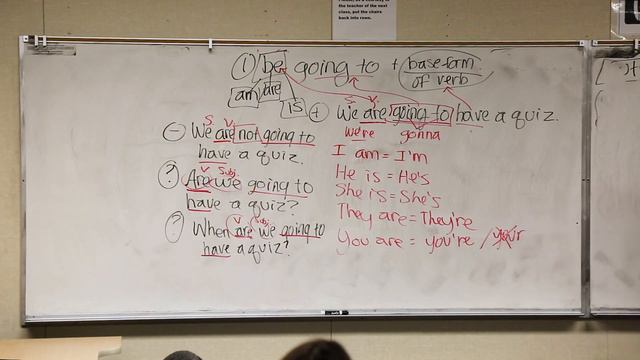 the teacher of the next
class, put the chairs
back into rows.
① be going to + base form
of verb
am are is
+ We are going to have a quiz.
S V
we're gonna
- We are not going to
S V
have a quiz.
? Are we going to
V Subj.
have a quiz?
? When are we going to
V Subj.
have a quiz?
I am = I'm
He is = He's
She is = She's
They are = They're
You are = you're / your